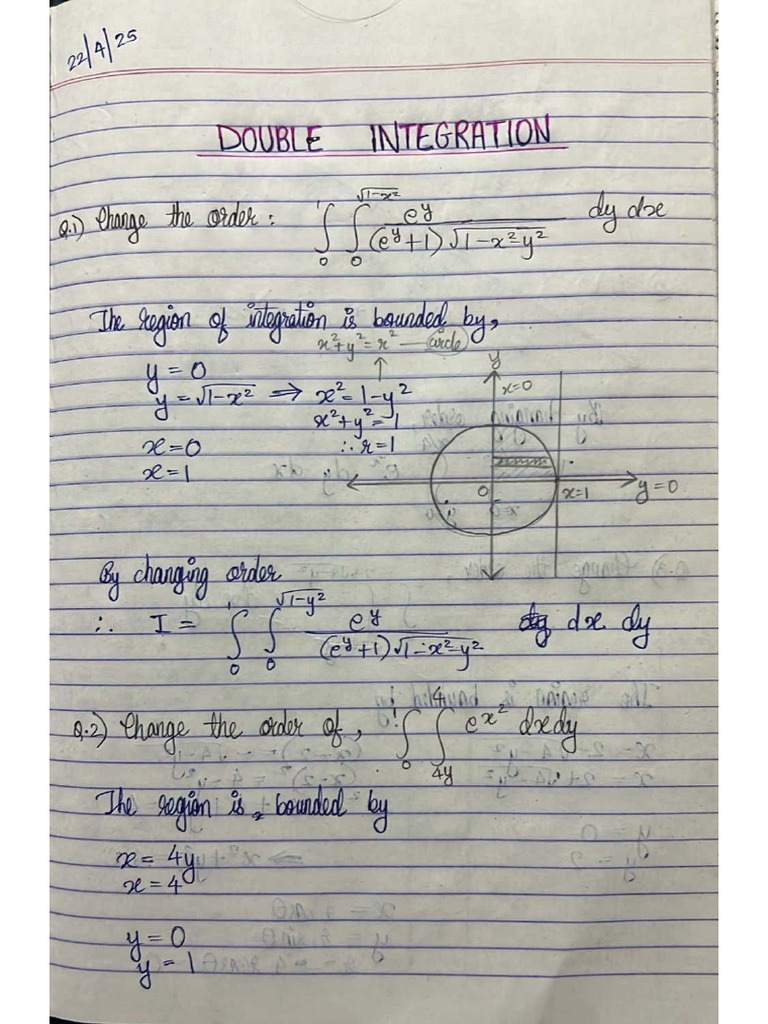 22/4/25
DOUBLE INTEGRATION
Q.1) Change the order: ∫₀¹ ∫₀^√(1-x²) e^y / ((e^y+1) √(1-x²-y²)) dy dx
The region of integration is bounded by,
x²+y²=r² — circle
y = 0
y = √(1-x²) ⇒ x² = 1-y²
x²+y² = 1
x = 0 ∴ r = 1
x = 1
y
x=0
0
x=1
y=0
By changing order
∴ I = ∫₀¹ ∫₀^√(1-y²) e^y / ((e^y+1) √(1-x²-y²)) dx dy
Q.2) Change the order of, ∫₀¹ ∫₄y⁴ e^x² dx dy
The region is bounded by
x = 4y
x = 4
y = 0
y = 1